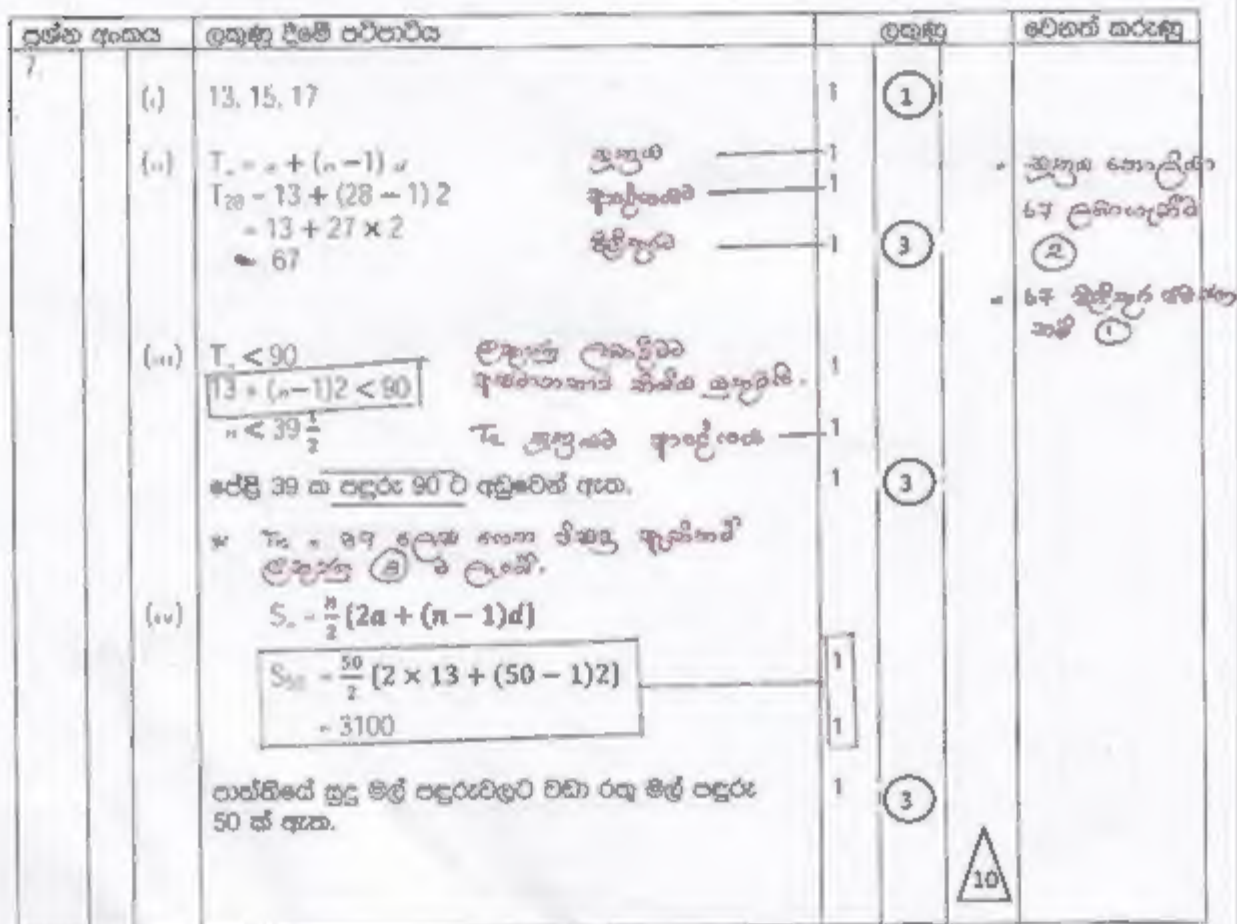 ප්‍රශ්න අංකය ලකුණු දීමේ පටිපාටිය ලකුණු වෙනත් කරුණු
7.
(i) 13, 15, 17 1 1
(ii) Tn = a + (n − 1) d සූත්‍රය 1
T28 = 13 + (28 − 1) 2 ආදේශයට 1
= 13 + 27 × 2
= 67 පිළිතුරට 1 3
සූත්‍රය නොලියා
67 ලබාගැනීම
2
67 පිළිතුර පමණක්
නම් 1
(iii) Tn < 90 ලකුණු ලබාදීමට 1
13 + (n−1)2 < 90 අසමානතාව තිබිය යුතුමයි.
n < 39 1/2 Tn සූත්‍රයට ආදේශයට 1
පේළි 39 ක පඳුරු 90 ට අඩුවෙන් ඇත. 1 3
* Tn = 89
ලකුණු 3 ම ලැබේ.
(iv) Sn = n/2 {2a + (n − 1)d}
S50 = 50/2 {2 × 13 + (50 − 1)2} 1
= 3100 1
පාත්තියේ සුදු මල් පඳුරුවලට වඩා රතු මල් පඳුරු 1 3
50 ක් ඇත.
10